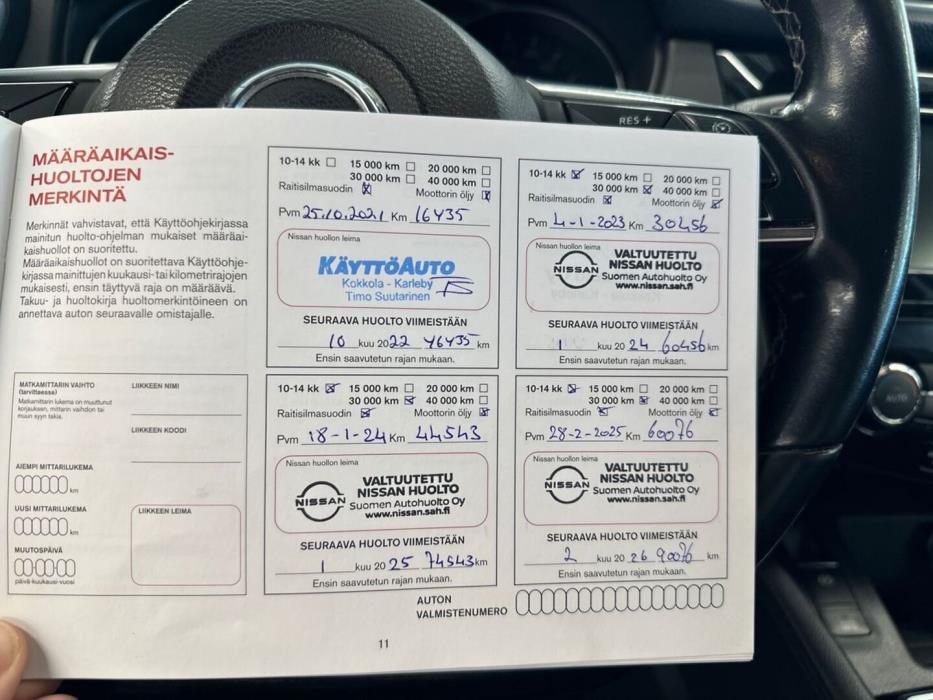 RES +
MÄÄRÄAIKAIS-
HUOLTOJEN
MERKINTÄ
Merkinnät vahvistavat, että Käyttöohjekirjassa
mainitun huolto-ohjelman mukaiset määräai-
kaishuollot on suoritettu.
Määräaikaishuollot on suoritettava Käyttöohje-
kirjassa mainittujen kuukausi- tai kilometrirajojen
mukaisesti, ensin täyttyvä raja on määräävä.
Takuu- ja huoltokirja huoltomerkintöineen on
annettava auton seuraavalle omistajalle.
10-14 kk 15 000 km 20 000 km
30 000 km 40 000 km
Raitisilmasuodin Moottorin öljy
Pvm 25.10.2021 Km 16435
Nissan huollon leima
KÄYTTÖAUTO
Kokkola - Karleby
Timo Suutarinen
SEURAAVA HUOLTO VIIMEISTÄÄN
10 kuu 2022 46435 km
Ensin saavutetun rajan mukaan.
10-14 kk 15 000 km 20 000 km
30 000 km 40 000 km
Raitisilmasuodin Moottorin öljy
Pvm 4-1-2023 Km 30456
Nissan huollon leima
NISSAN
VALTUUTETTU
NISSAN HUOLTO
Suomen Autohuolto Oy
www.nissan.sah.fi
SEURAAVA HUOLTO VIIMEISTÄÄN
1 kuu 20 24 60456 km
Ensin saavutetun rajan mukaan.
MATKAMITTARIN VAIHTO
(tarvittaessa)
Matkamittarin lukema on muuttunut
korjauksen, mittarin vaihdon tai
muun syyn takia.
LIIKKEEN NIMI
LIIKKEEN KOODI
AIEMPI MITTARILUKEMA
km
UUSI MITTARILUKEMA
km
MUUTOSPÄIVÄ
päivä-kuukausi-vuosi
LIIKKEEN LEIMA
10-14 kk 15 000 km 20 000 km
30 000 km 40 000 km
Raitisilmasuodin Moottorin öljy
Pvm 18-1-24 Km 44543
Nissan huollon leima
NISSAN
VALTUUTETTU
NISSAN HUOLTO
Suomen Autohuolto Oy
www.nissan.sah.fi
SEURAAVA HUOLTO VIIMEISTÄÄN
1 kuu 20 25 74543 km
Ensin saavutetun rajan mukaan.
10-14 kk 15 000 km 20 000 km
30 000 km 40 000 km
Raitisilmasuodin Moottorin öljy
Pvm 28-2-2025 Km 60076
Nissan huollon leima
NISSAN
VALTUUTETTU
NISSAN HUOLTO
Suomen Autohuolto Oy
www.nissan.sah.fi
SEURAAVA HUOLTO VIIMEISTÄÄN
2 kuu 20 26 90076 km
Ensin saavutetun rajan mukaan.
AUTON
VALMISTENUMERO
11
AUTO